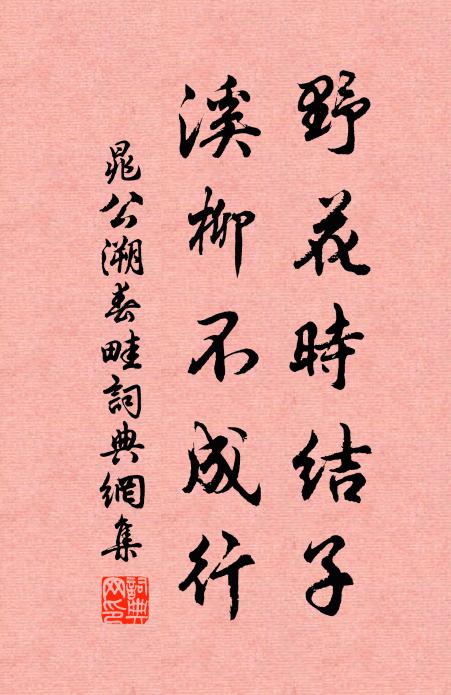 野花時結子
溪柳不成行
晁公溯春畦詞典網集
詞典网印